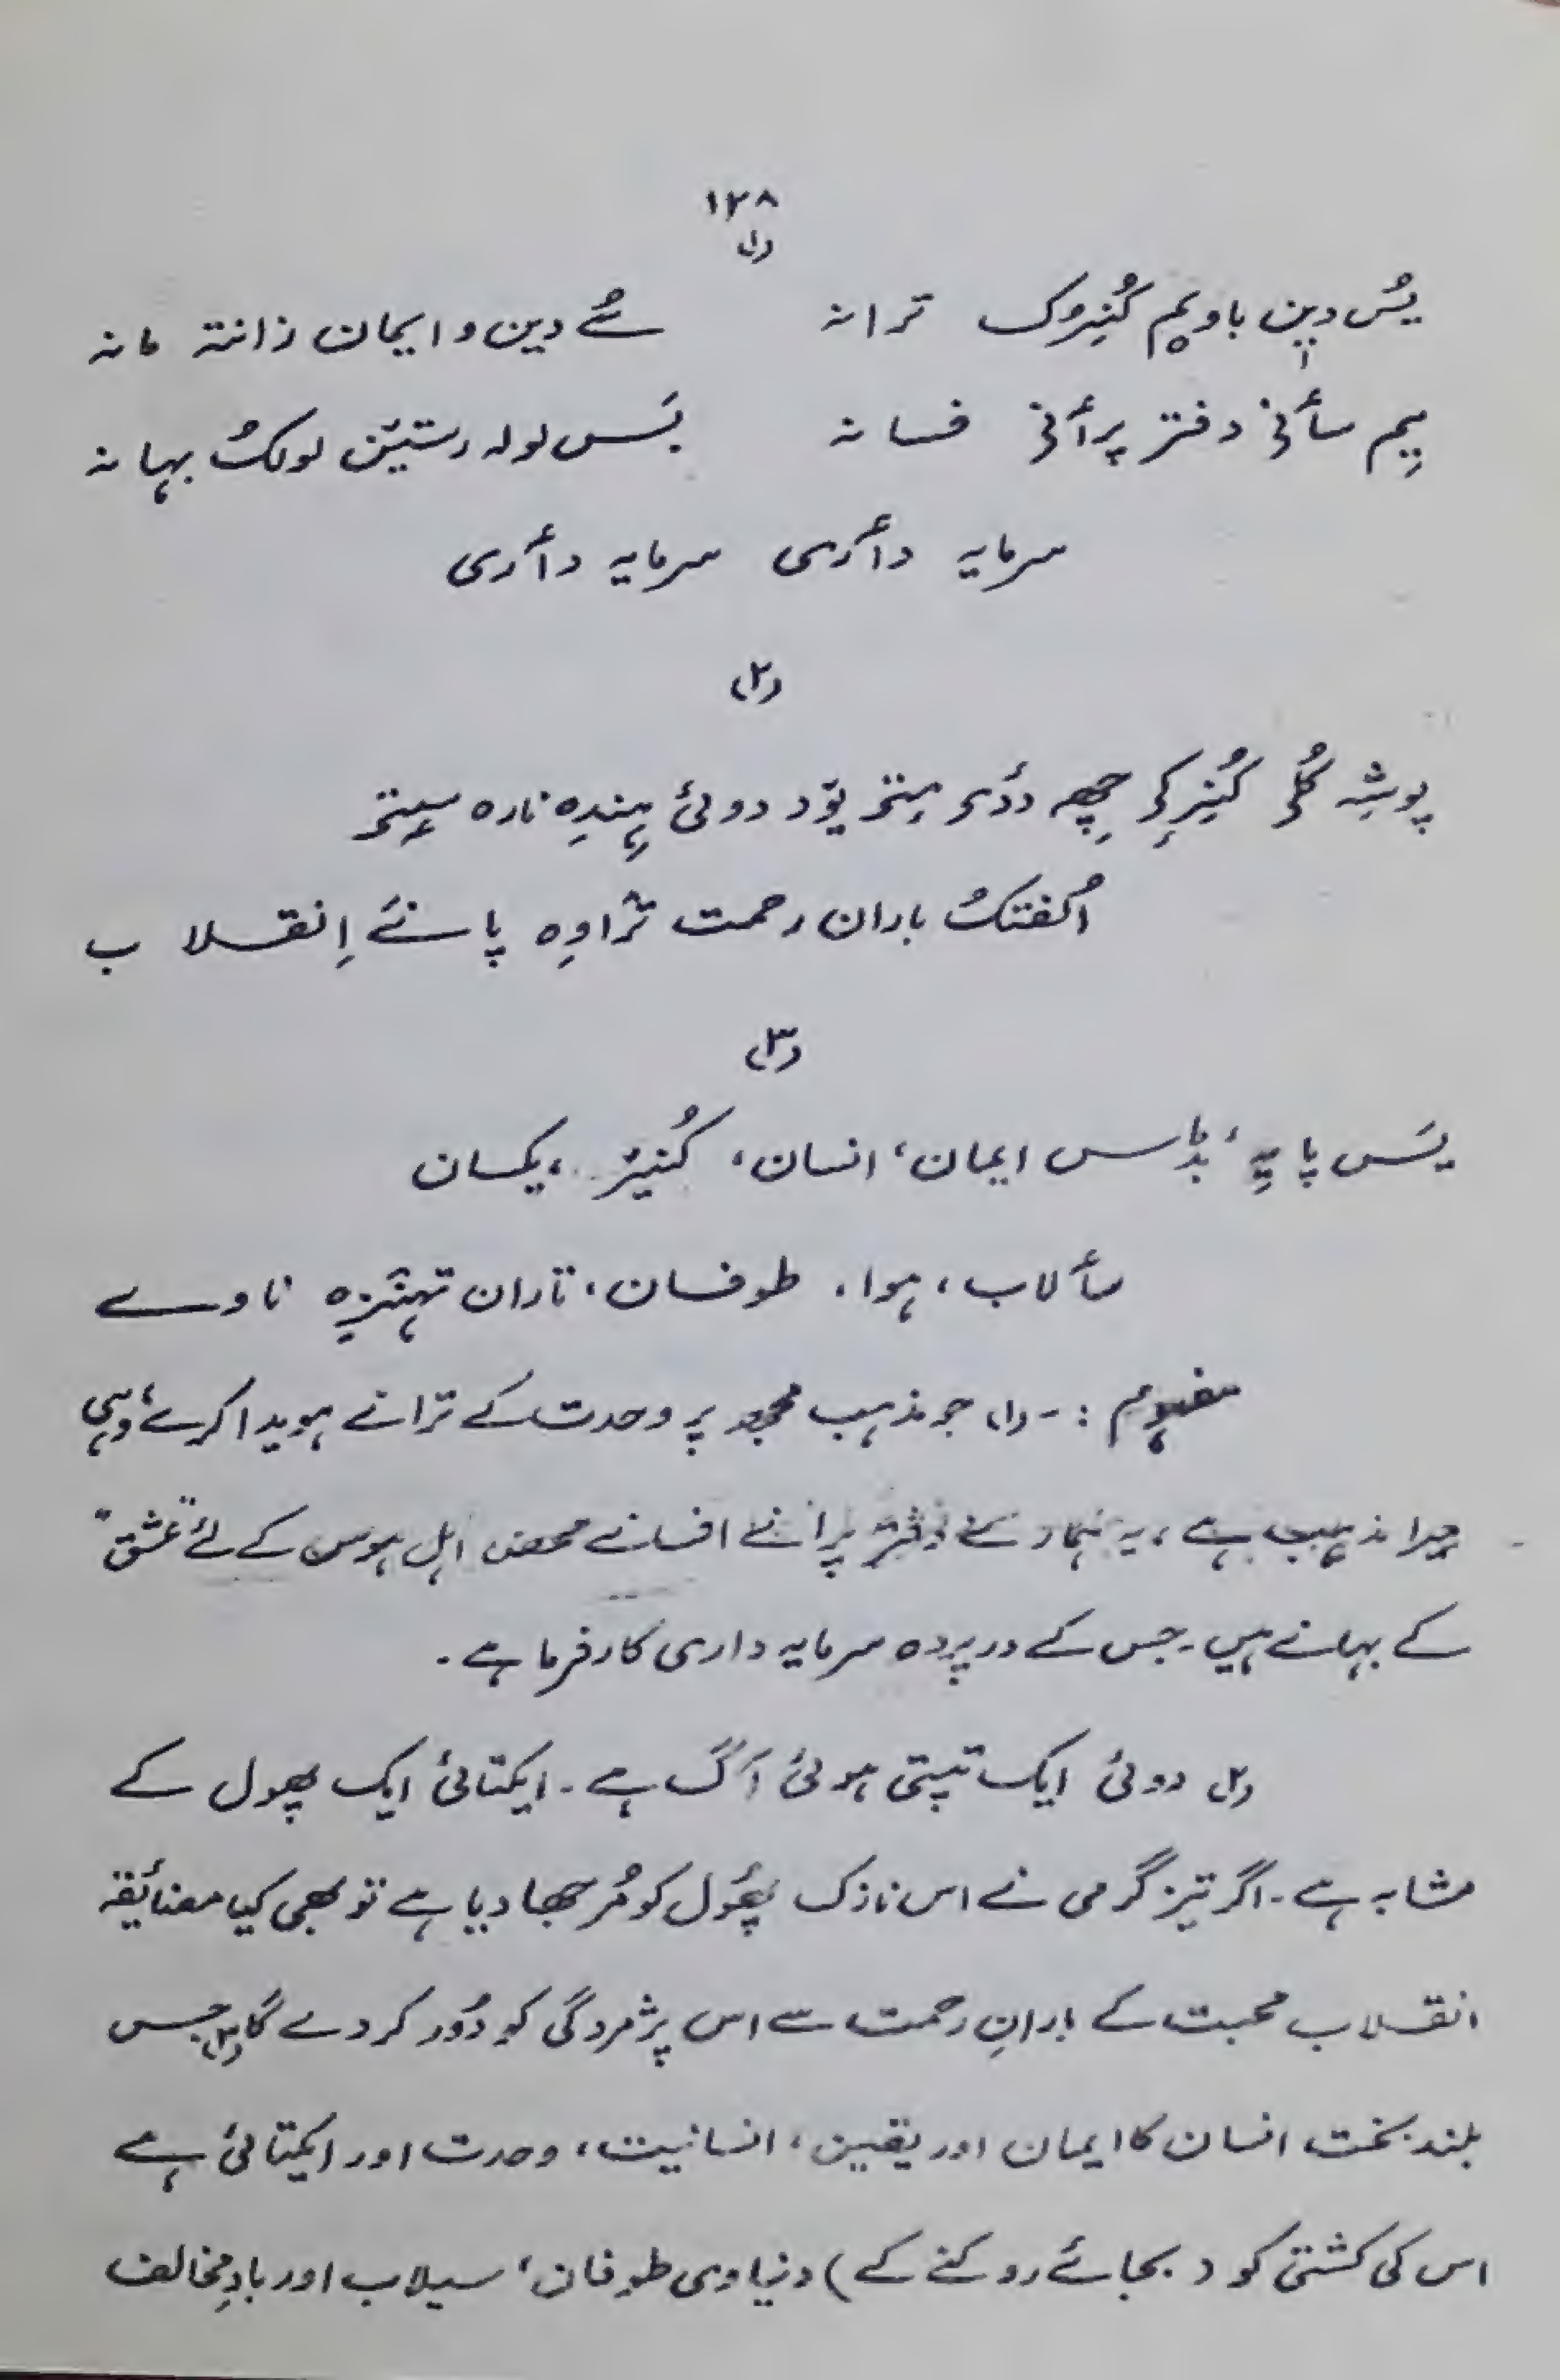 ۱۲۸
(۱)
یُس دین باویم کُنِرُک ترانہ سُے دین و ایمان زانتہ مانہ
یِم سأنی دفتر پرأنی فسانہ بَس لولہ رستیَن لولکُ بہانہ
سرمایہ دأری سرمایہ دأری
(۲)
پوشہِ گُلُ کُنِرکِ چھِہ ددُی متۍ یوٚد دوئی ہِندِہ نارہ سیتۍ
اُلفتکُ باران رحمت ترٛاوِہ پانے اِنقلاب
(۳)
یَس پایہِ بڈٕس ایمان، انسان، کُنیرُ، یکسان
سأ لاب، ہوا، طوفسان، تاران تہنٛزہ ناوے
مفہوم :- (۱) جو مذہب مجھ پر وحدت کے ترانے ہویدا کرے، وہی
میرا مذہب ہے، یہ ہمارے دفتر پرانے افسانے محض اہل ہوس کے لئے "عشق"
کے بہانے ہیں۔ جس کے در پردہ سرمایہ داری کارفرما ہے۔
(۲) دوئی ایک تپتی ہوئی آگ ہے۔ ایکتائی ایک پھول کے
مشابہ ہے۔ اگر تیز گرمی نے اس نازک پھُول کو مُرجھا دیا ہے تو بھی کیا مضائقہ
انقلاب محبت کے بارانِ رحمت سے اس پژمردگی کو دُور کر دے گا (۳) جس
بلند بخت انسان کا ایمان اور یقین، انسانیت، وحدت اور ایکتائی ہے
اس کی کشتی کو (بجائے روکنے کے) دنیاوی طوفان، سیلاب اور بادِ مخالف